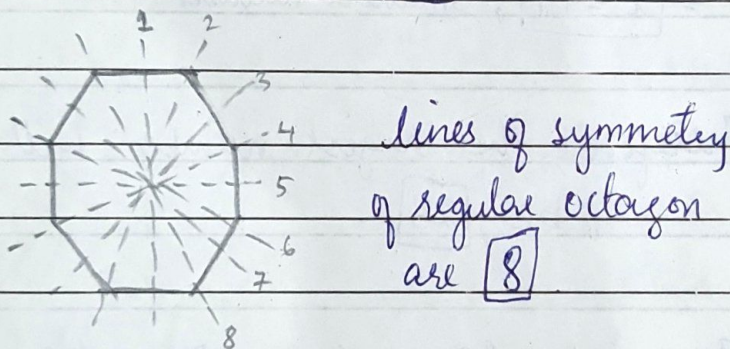 1 2
3
4
5
6
7
8
lines of symmetry
of regular octagon
are 8